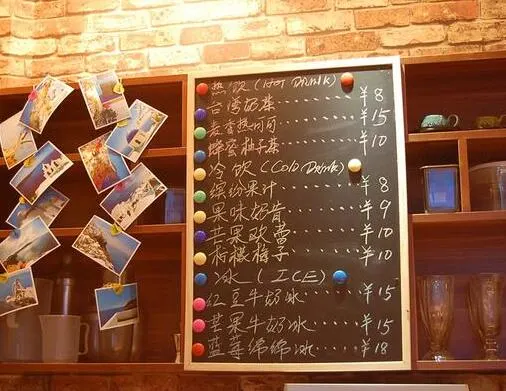 热饮 (Hot Drink)
台湾奶茶 ········ ¥8
麦香热可可 ········ ¥15
蜂蜜柚子茶 ········ ¥10
冷饮 (Cold Drink)
缤纷果汁 ········ ¥8
果味奶昔 ········ ¥9
芒果欧蕾 ········ ¥10
柠檬梅子 ········ ¥10
冰 (ICE)
红豆牛奶冰 ······ ¥15
芒果牛奶冰 ······ ¥15
蓝莓绵绵冰 ······ ¥18